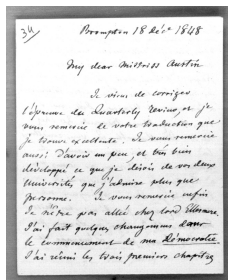 34
Brompton 18 déc. 1848
My dear Mistriss Austin
Je viens de corriger
l'épreuve du Quarterly review, et je
vous remercie de votre traduction que
je trouve excellente. Je vous remercie
aussi d'avoir un peu, et très bien
développé ce que je disois de vos deux
Universités, que j'admire plus que
personne. Je vous remercie enfin
de n'être pas allée chez lord
J'ai fait quelques changemens dans
le commencement de ma Démocratie
J'ai réuni les trois premiers chapitres